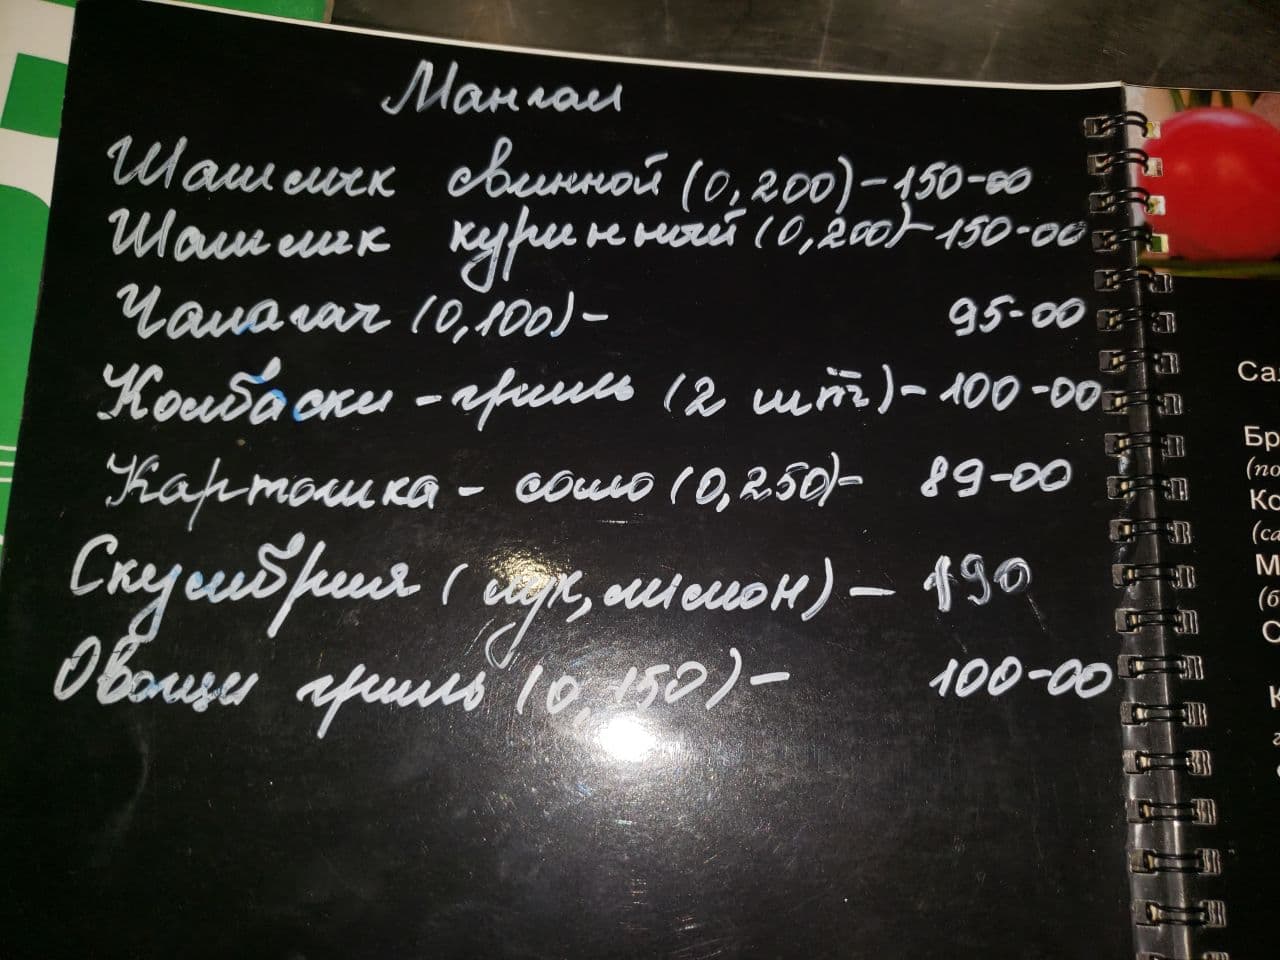 Мангал
Шашлык свинной (0,200) - 150-00
Шашлик куринный (0,200) - 150-00
Чалагач (0,100) - 95-00
Колбаски - гриль (2 шт) - 100-00
Картошка - сало (0,250) - 89-00
Скумбрия (лук, лімон) - 190
Овощи гриль (0,150) - 100-00
Са
Бр
(по
Ко
(са
М
(б
О
К